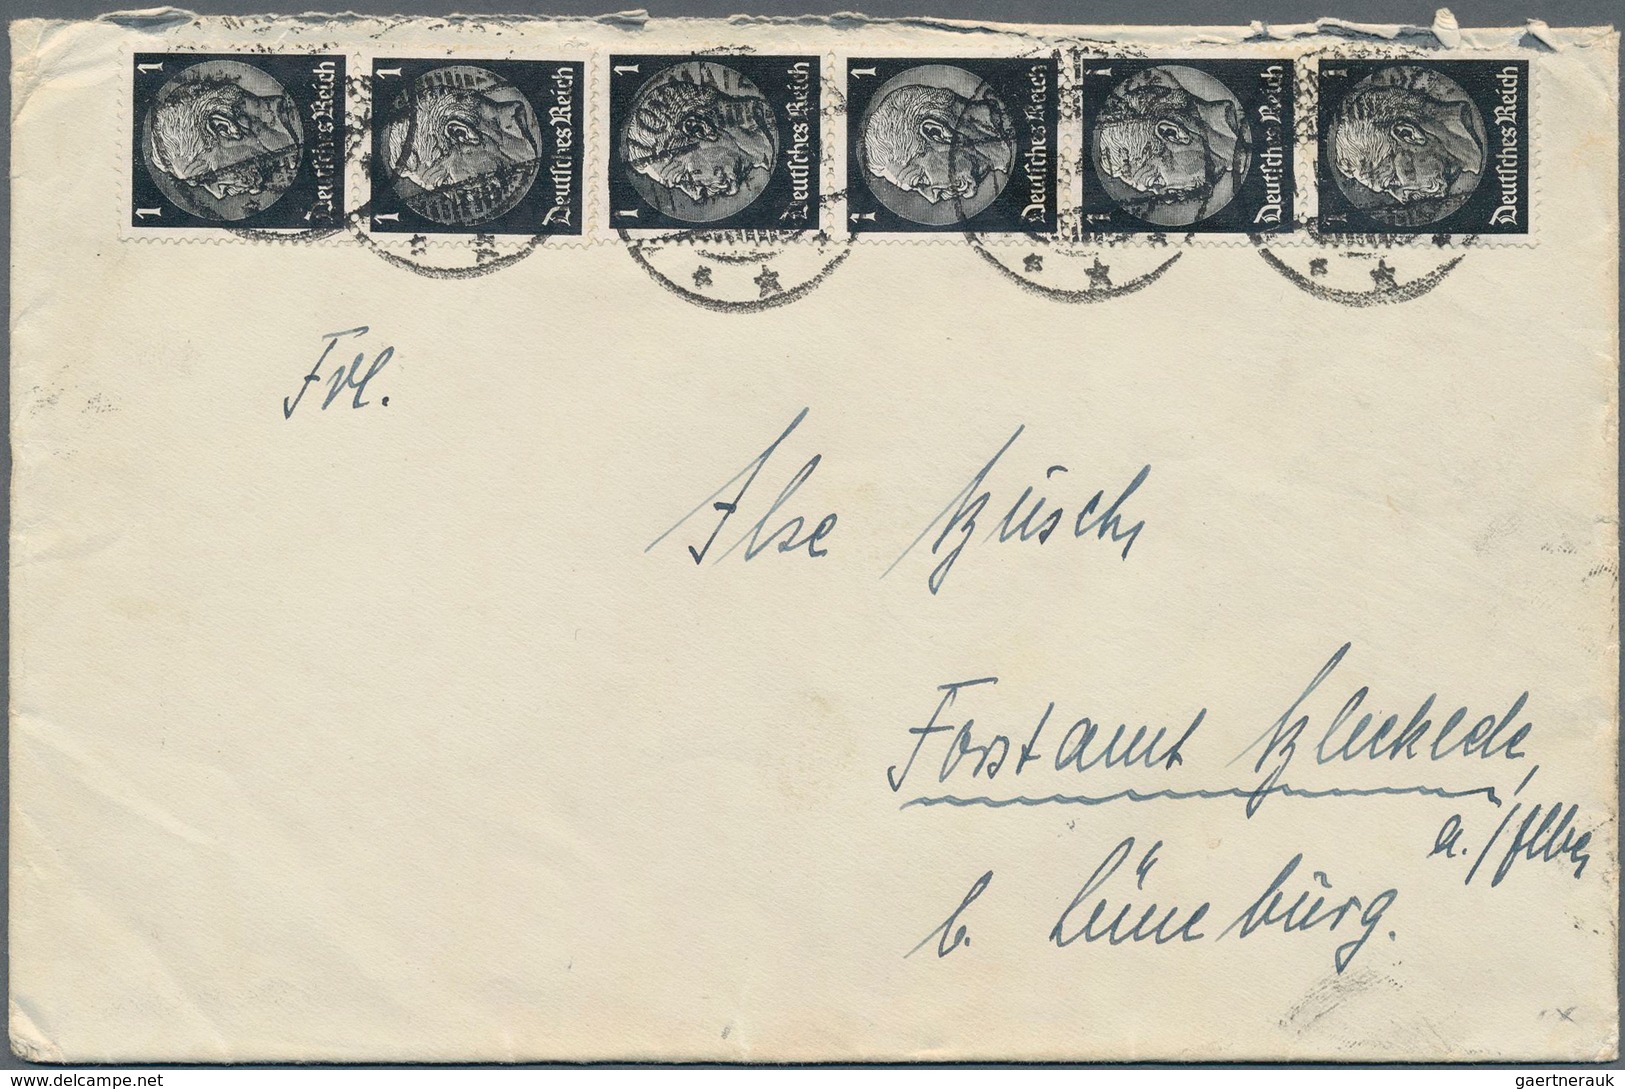 1 1 Deutsches Reich
1 1 Deutsches Reich
1 1 Deutsches Reich
1 1 Deutsches Reich
1 1 Deutsches Reich
1 1 Deutsches Reich
Frl.
Ilse Büsch
Forstamt Bleckede,
a./Elbe
b. Lüneburg.
DELCAMPE.NET
gaertnerauk